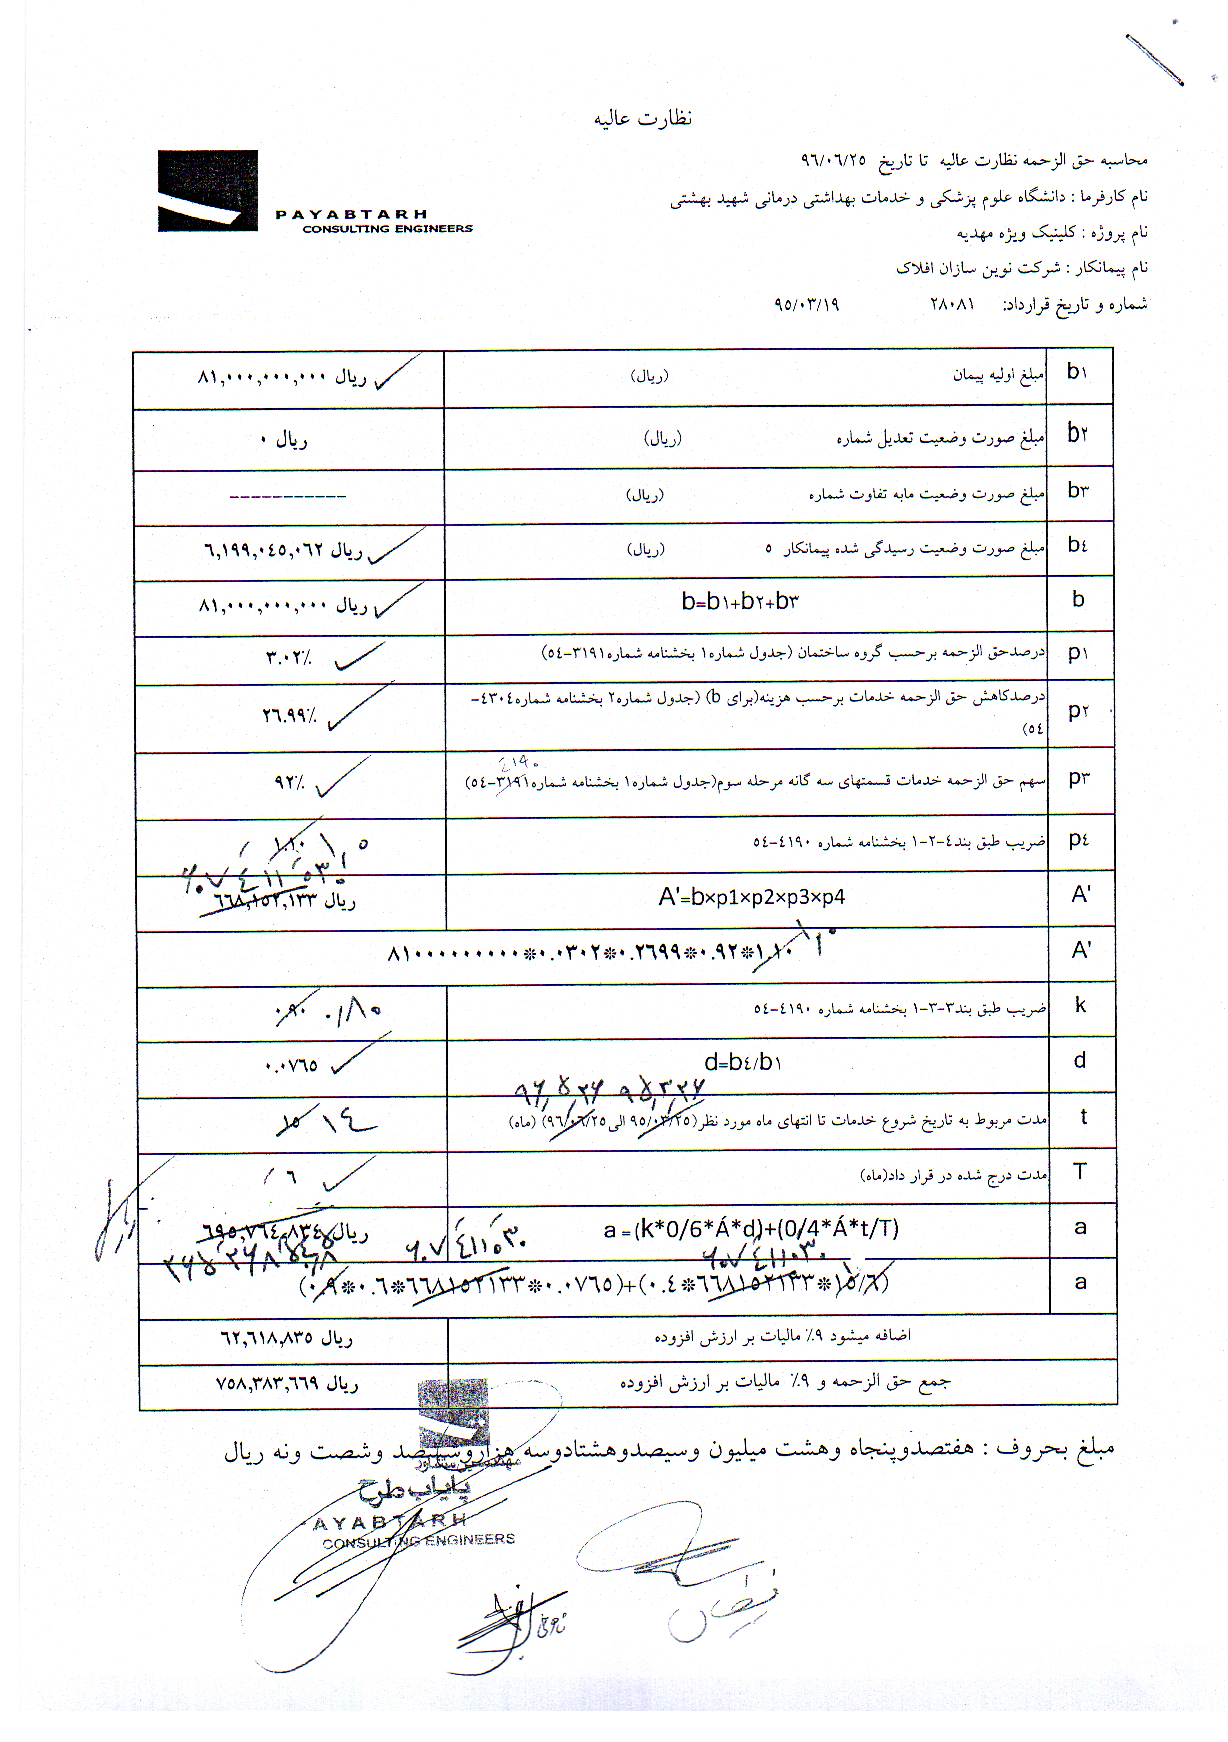 نظارت عالیه
محاسبه حق الزحمه نظارت عالیه تا تاریخ ۹۶/۰۶/۲۵
نام کارفرما : دانشگاه علوم پزشکی و خدمات بهداشتی درمانی شهید بهشتی
نام پروژه : کلینیک ویژه مهدیه
نام پیمانکار : شرکت نوین سازان افلاک
شماره و تاریخ قرارداد: ۲۸۰۸۱ ۹۵/۰۳/۱۹
PAYABTARH
CONSULTING ENGINEERS
b۱ مبلغ اولیه پیمان (ریال) ۸۱,۰۰۰,۰۰۰,۰۰۰ ریال
b۲ مبلغ صورت وضعیت تعدیل شماره (ریال) ۰ ریال
b۳ مبلغ صورت وضعیت مابه تفاوت شماره (ریال) -----------
b٤ مبلغ صورت وضعیت رسیدگی شده پیمانکار ٥ (ریال) ٦,۱۹۹,۰٤٥,۰٦۲ ریال
b b=b۱+b۲+b۳ ۸۱,۰۰۰,۰۰۰,۰۰۰ ریال
p۱ درصدحق الزحمه برحسب گروه ساختمان (جدول شماره۱ بخشنامه شماره۳۱۹۱-٥٤) ۳.۰۲٪
p۲ درصدکاهش حق الزحمه خدمات برحسب هزینه(برای b) (جدول شماره۲ بخشنامه شماره٤۳۰٤-
٥٤) ۲٦.۹۹٪
٤۱۹۰
p۳ سهم حق الزحمه خدمات قسمتهای سه گانه مرحله سوم(جدول شماره۱ بخشنامه شماره۳۱۹۱-٥٤) ۹۲٪
p٤ ضریب طبق بند٤-۲-۱ بخشنامه شماره ٤۱۹۰-٥٤ ۱.۲۰
A' A'=b×p1×p2×p3×p4 ٦٦۸,۱٥۲,۱۳۳ ریال
A' ۸۱۰۰۰۰۰۰۰۰۰*۰.۰۳۰۲*۰.۲٦۹۹*۰.۹۲*۱.۱۰
k ضریب طبق بند۳-۳-۱ بخشنامه شماره ٤۱۹۰-٥٤ ۰.۹۰ ۰/۸۵
d d=b٤/b۱ ۰.۰۷٦٥
۹۵,۳,۲۶ ۹۶,۵,۲۶
t مدت مربوط به تاریخ شروع خدمات تا انتهای ماه مورد نظر(۹٥/۰۳/۲٥ الی ۹٦/۰٦/۲٥) (ماه) ۱٥ ۱٤
T مدت درج شده در قرار داد(ماه) ٦
a a =(k*0/6*Á*d)+(0/4*Á*t/T) ٦۹٥,۷٦٤,۸۳٤ ریال
a (۰.۹*۰.٦*٦٦۸۱٥۲۱۳۳*۰.۰۷٦٥)+(۰.٤*٦٦۸۱٥۲۱۳۳*۱٥/٦)
اضافه میشود ۹٪ مالیات بر ارزش افزوده ٦۲,٦۱۸,۸۳٥ ریال
جمع حق الزحمه و ۹٪ مالیات بر ارزش افزوده ۷٥۸,۳۸۳,٦٦۹ ریال
مبلغ بحروف : هفتصدوپنجاه وهشت میلیون وسیصدوهشتادوسه هزاروسیصد وشصت ونه ریال
پایاب طرح
AYABTARH
CONSULTING ENGINEERS